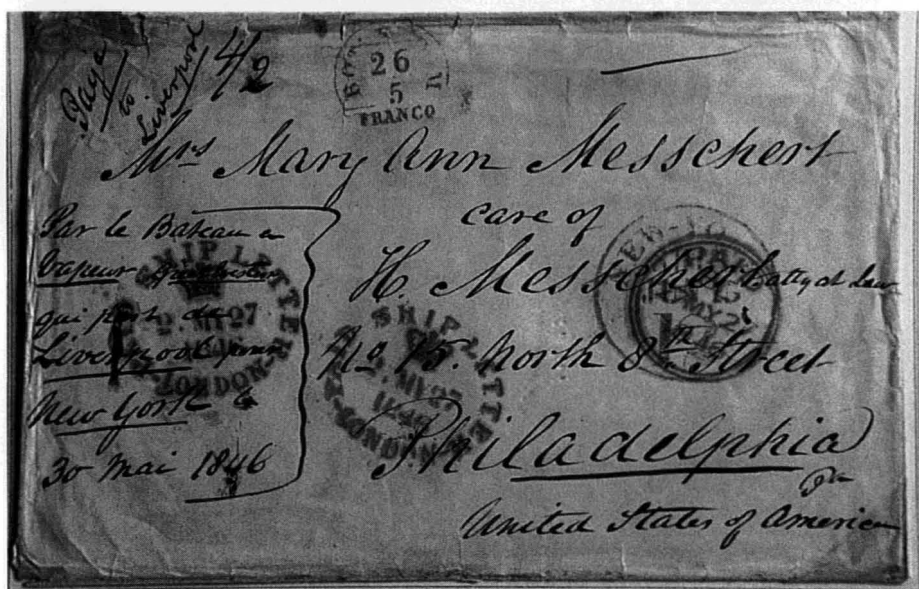 Paid
to
Liverpool
4/2
26
5
FRANCO
Mrs Mary Ann Messchert
care of
H. Messchert atty at Law
No 15. North 8th Street
Philadelphia
Pa
United States of America
Par le Bateau a
Vapeur
qui part de
Liverpool pour
New York le
30 Mai 1846
SHIP LETTER
27
LONDON
SHIP LETTER
LONDON
NEW-YO